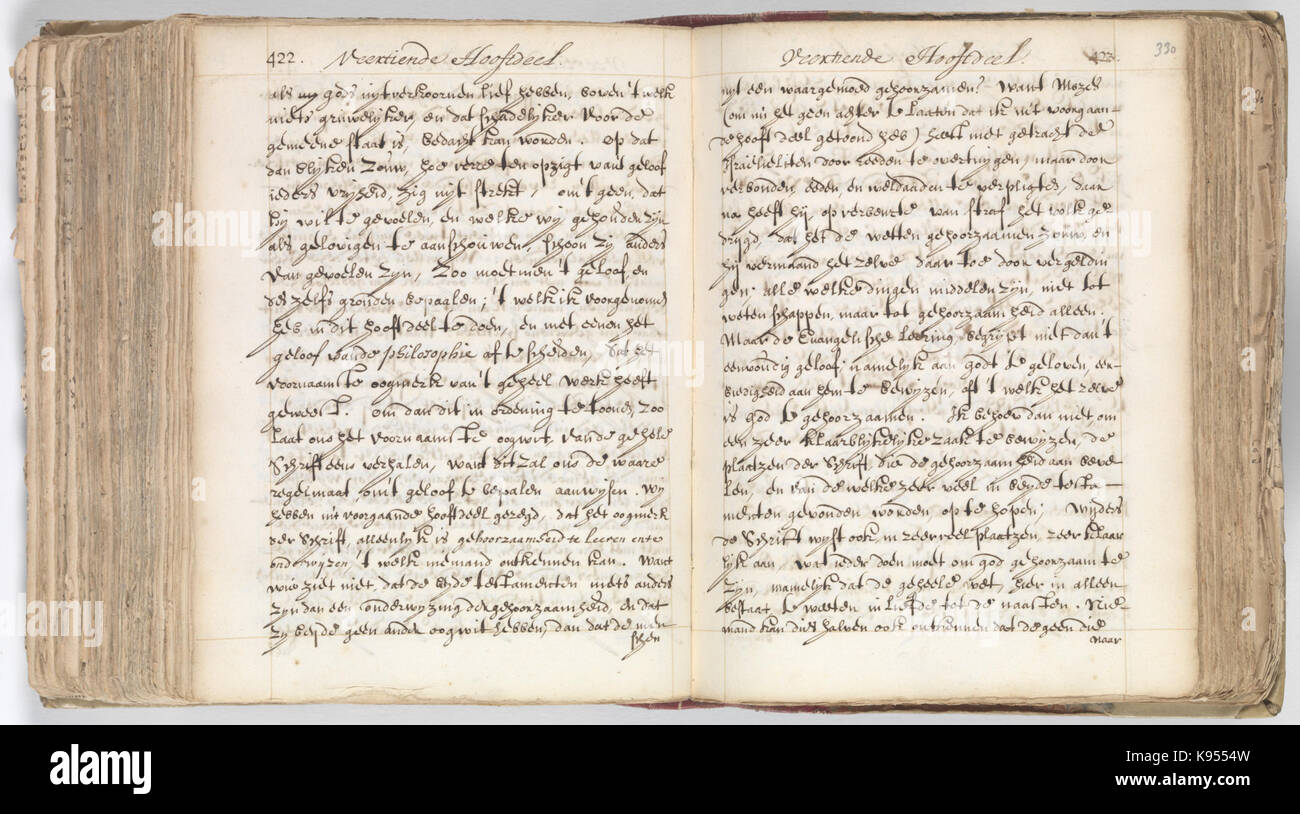 422. Veertiende Hoofdeel.
als my gods uytverkoornen lief hebben, boven 't welk
niets gruwelyker, en dat schadelyker voor de
gemeene staat is, bedacht kan worden. Op dat
dan blyken zouw, hoe verre ten opzigt van't geloof
ieders vryheid, zig uyt strekt, om't geen, dat
hy wil te gevoelen, en welke wy gehouden zyn
als gelovigen te aanschouwen, schoon zy anders
van gevoelen zyn, zoo moet men 't geloof en
des zelfs gronden bepaalen; 't welk ik voorgenomen
heb in dit hooftdeel te doen, en met eenen het
geloof van de philosophie af te scheiden, dat het
voornaamste oogmerk van't geheel werk heeft
geweest. Om dan dit in ordening te toonen, zoo
laat ons het voornaamste oogwit, van de geheele
Schrift eens verhalen, want dit zal ons de waare
regelmaat, om't geloof te bepalen aanwysen. Wy
hebben in't voorgaande hooftdeel gezegd, dat het oogmerk
der Schrift, alleenlyk is gehoorzaamheid te leeren en te
onderwyzen, 't welk niemand ontkennen kan. Want
wie ziet niet, dat de byde testamenten niets anders
zyn dan een onderwyzing der gehoorzaamheid, en dat
zy beyde geen ander oogwit hebben, dan dat de men
schen
Veertiende Hoofdeel. 423. 330
uyt een waar gemoed gehoorzamen? Want Mozes
(om nu het geen achter te laaten dat ik in't voorgaan-
de hooft deel getoond heb) heeft niet getracht de
Israëliliten door reeden te overtuygen, maar door
verbonden, eeden en weldaaden te verpligten, daar
na heeft hy op verbeurte van straf het volk ge
drygd, dat het de wetten gehoorzaamen zouw, en
hy vermaand het zelve daar toe door vergeldin
gen; alle welke dingen middelen zyn, niet tot
wetenschappen, maar tot gehoorzaamheid alleen.
Maar de Euangelische Leering, begrypt niet dan't
eenvoudig geloof; namelyk aan godt te geloven, eer-
biedigheid aan hem te bewyzen, oft 't welk het zelve
is God te gehoorzaamen. Ik behoev dan niet, om
een zeer klaarblykelyke zaak te bewyzen, de
plaatzen der Schrift, die de gehoorzaamheid aan beve
len, en van de welke zeer veel in beyde testa-
menten gevonden worden, op te hopen; Wyders
de Schrift wyst ook, in zeer veel plaatzen, zeer klaar
lyk aan, wat ieder doen moet om god gehoorzaam te
zyn, namelyk dat de geheele wet, hier in alleen
bestaat, te weeten in liefde tot de naasten. Nie
mand kan dies halven ook ontkennen dat de geen die
naar
alamy
Image ID: K9554W
www.alamy.com